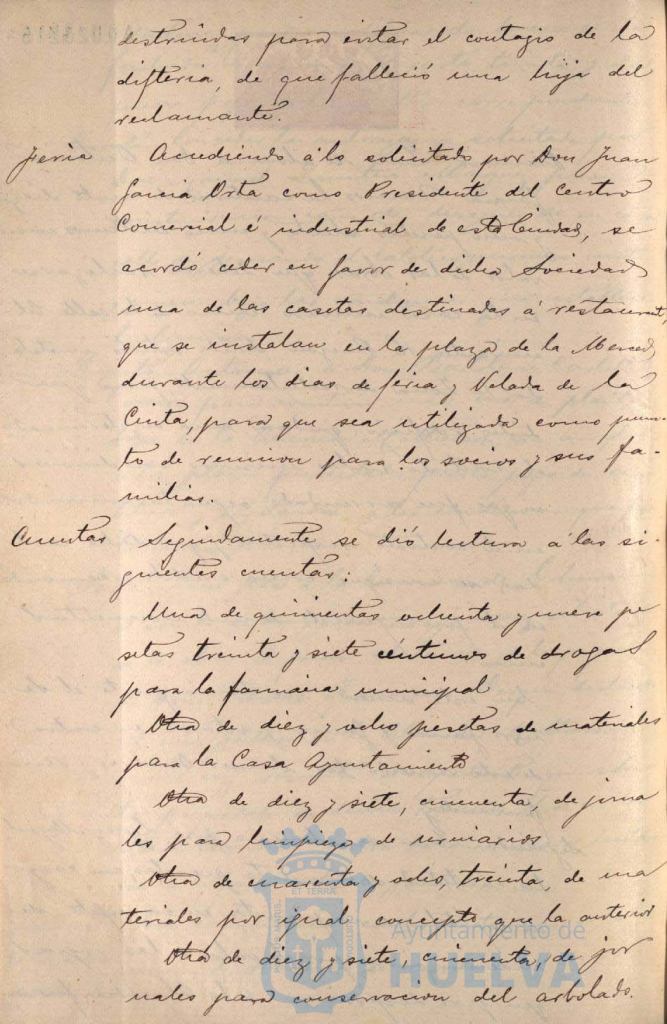 destruidas para evitar el contagio de la
difteria, de que falleció una hija del
reclamante.
Feria Accediendo á lo solicitado por Don Juan
Garcia Orta como Presidente del Centro
Comercial é industrial de esta Ciudad, se
acordó ceder en favor de dicha Sociedad
una de las casetas destinadas á restaurant
que se instalan en la plaza de la Merced,
durante los dias de feria y Velada de la
Cinta, para que sea utilizada como pun-
to de reunion para los socios y sus fa-
milias.
Cuentas Seguidamente se dió lectura á las si-
guientes cuentas:
Una de quinientas ochenta y nueve pe
setas treinta y siete céntimos de drogas
para la farmacia municipal
Otra de diez y ocho pesetas de materiales
para la Casa Ayuntamiento
Otra de diez y siete, cincuenta, de jorna
les para limpieza de urinarios
Otra de cuarenta y ocho, treinta, de ma
teriales por igual concepto que la anterior
Otra de diez y siete, cincuenta, de jor
nales para conservacion del arbolado.
Ayuntamiento de
HUELVA